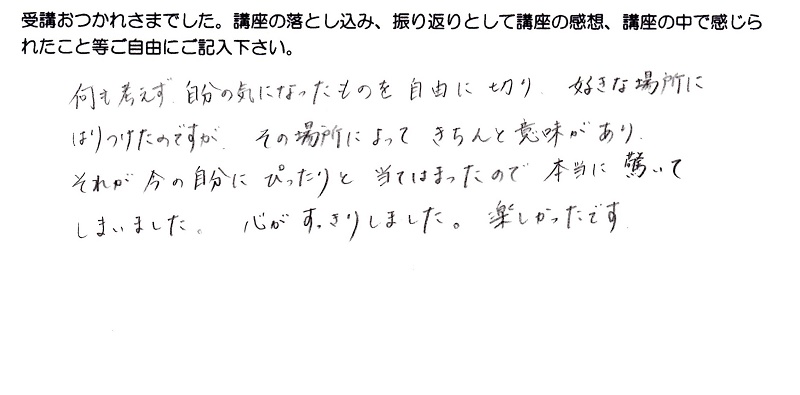 受講おつかれさまでした。講座の落とし込み、振り返りとして講座の感想、講座の中で感じら
れたこと等ご自由にご記入下さい。
何も考えず、自分の気になったものを自由に切り、好きな場所に
はりつけたのですが、その場所によってきちんと意味があり、
それが今の自分にぴったりと当てはまったので本当に驚いて
しまいました。心がすっきりしました。楽しかったです